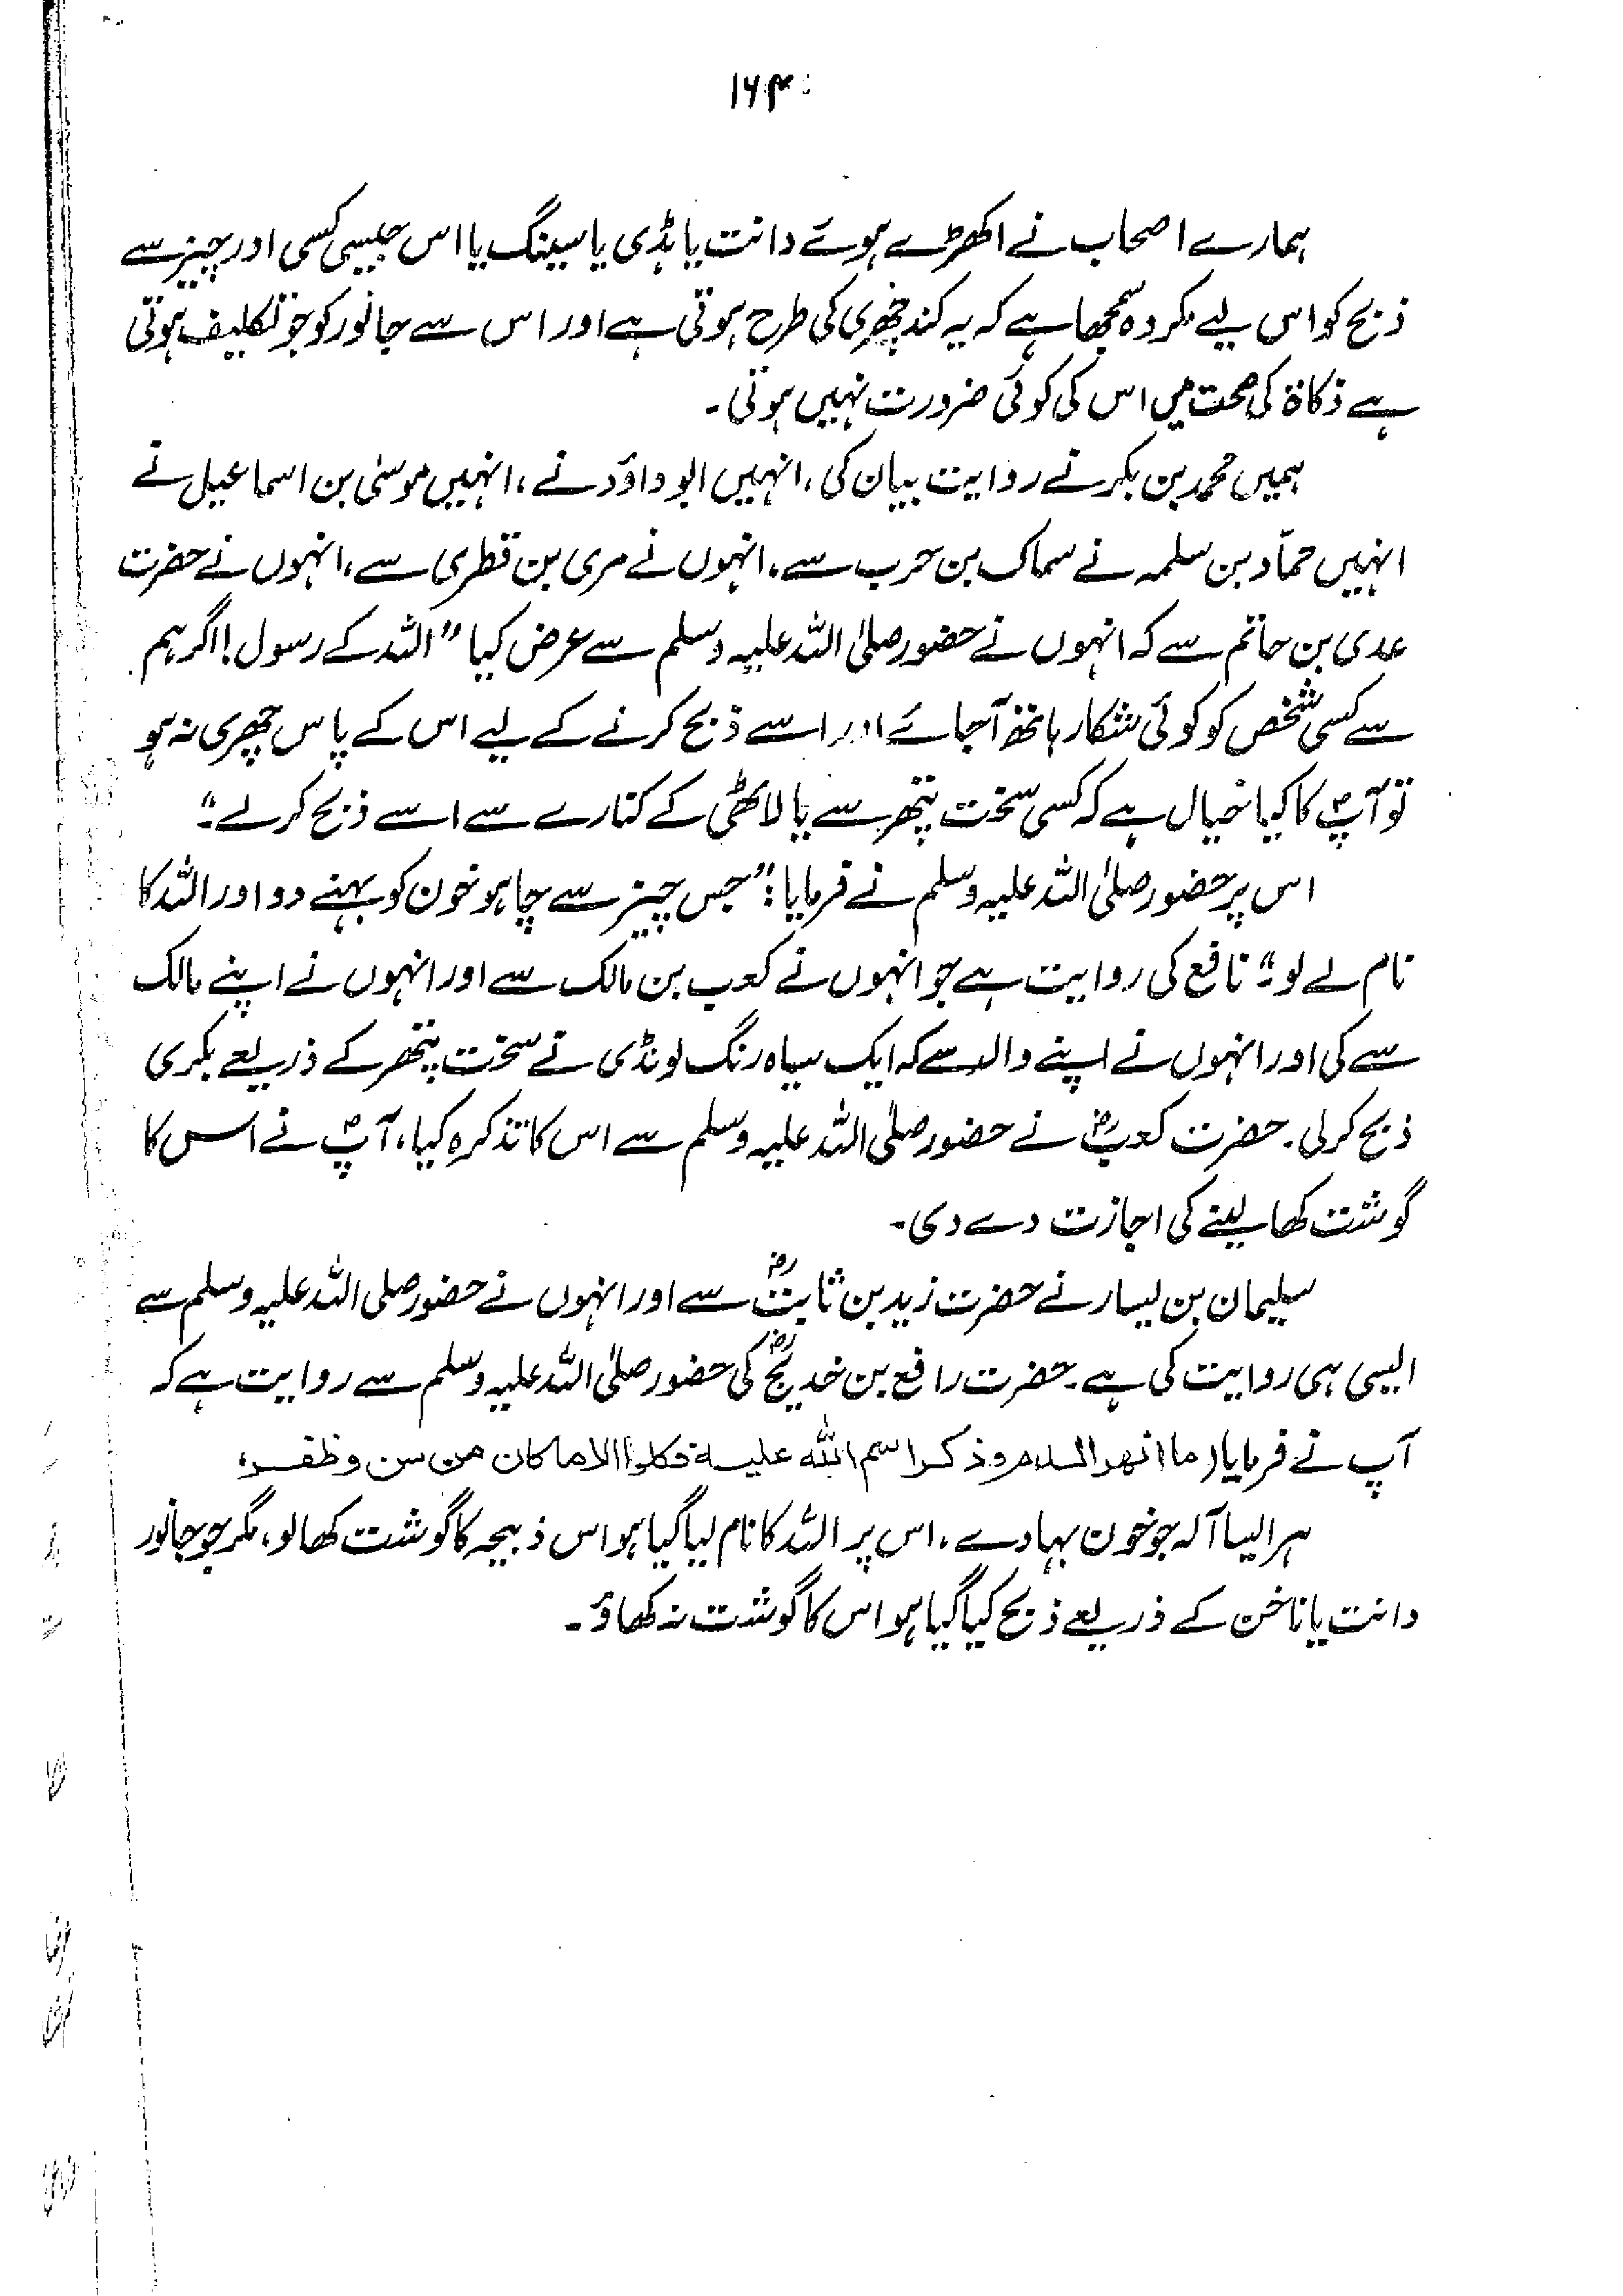 ۱۶۴
ہمارے اصحاب نے اکھڑے ہوئے دانت یا ہڈی یا سینگ یا اس جیسی کسی اور چیز سے
ذبح کو اس لیے مکروہ سمجھا ہے کہ یہ کند چھری کی طرح ہوتی ہے اور اس سے جانور کو جو تکلیف ہوتی
ہے ذکاۃ کی صحت میں اس کی کوئی ضرورت نہیں ہوتی۔
ہمیں محمد بن بکر نے روایت بیان کی، انہیں ابو داؤد نے، انہیں موسیٰ بن اسماعیل نے
انہیں حمّاد بن سلمہ نے سماک بن حرب سے، انہوں نے مری بن قطری سے، انہوں نے حضرت
عدی بن حاتم سے کہ انہوں نے حضور صلیٰ اللہ علیہ وسلم سے عرض کیا "اللہ کے رسول! اگر ہم
سے کسی شخص کو کوئی شکار ہاتھ آجائے اور اسے ذبح کرنے کے لیے اس کے پاس چھری نہ ہو
تو آپؐ کا کیا خیال ہے کہ کسی سخت پتھر سے یا لاٹھی کے کنارے سے اسے ذبح کر لے۔"
اس پر حضور صلیٰ اللہ علیہ وسلم نے فرمایا: "جس چیز سے چاہو خون کو بہنے دو اور اللہ کا
نام لے لو۔" نافع کی روایت ہے جو انہوں نے کعب بن مالک سے اور انہوں نے اپنے مالک
سے کی اور انہوں نے اپنے والد سے کہ ایک سیاہ رنگ لونڈی نے سخت پتھر کے ذریعے بکری
ذبح کر لی۔ حضرت کعبؓ نے حضور صلیٰ اللہ علیہ وسلم سے اس کا تذکرہ کیا، آپؐ نے اس کا
گوشت کھا لینے کی اجازت دے دی۔
سلیمان بن یسار نے حضرت زید بن ثابتؓ سے اور انہوں نے حضور صلی اللہ علیہ وسلم سے
ایسی ہی روایت کی ہے۔ حضرت رافع بن خدیجؓ کی حضور صلیٰ اللہ علیہ وسلم سے روایت ہے کہ
آپ نے فرمایا (ما انهر الدم وذكر اسم الله عليه فكلوا الا ما كان من سن وظفر،
ہر ایسا آلہ جو خون بہا دے، اس پر اللہ کا نام لیا گیا ہو اس ذبیحہ کا گوشت کھا لو، مگر جو جانور
دانت یا ناخن کے ذریعے ذبح کیا گیا ہو اس کا گوشت نہ کھاؤ۔